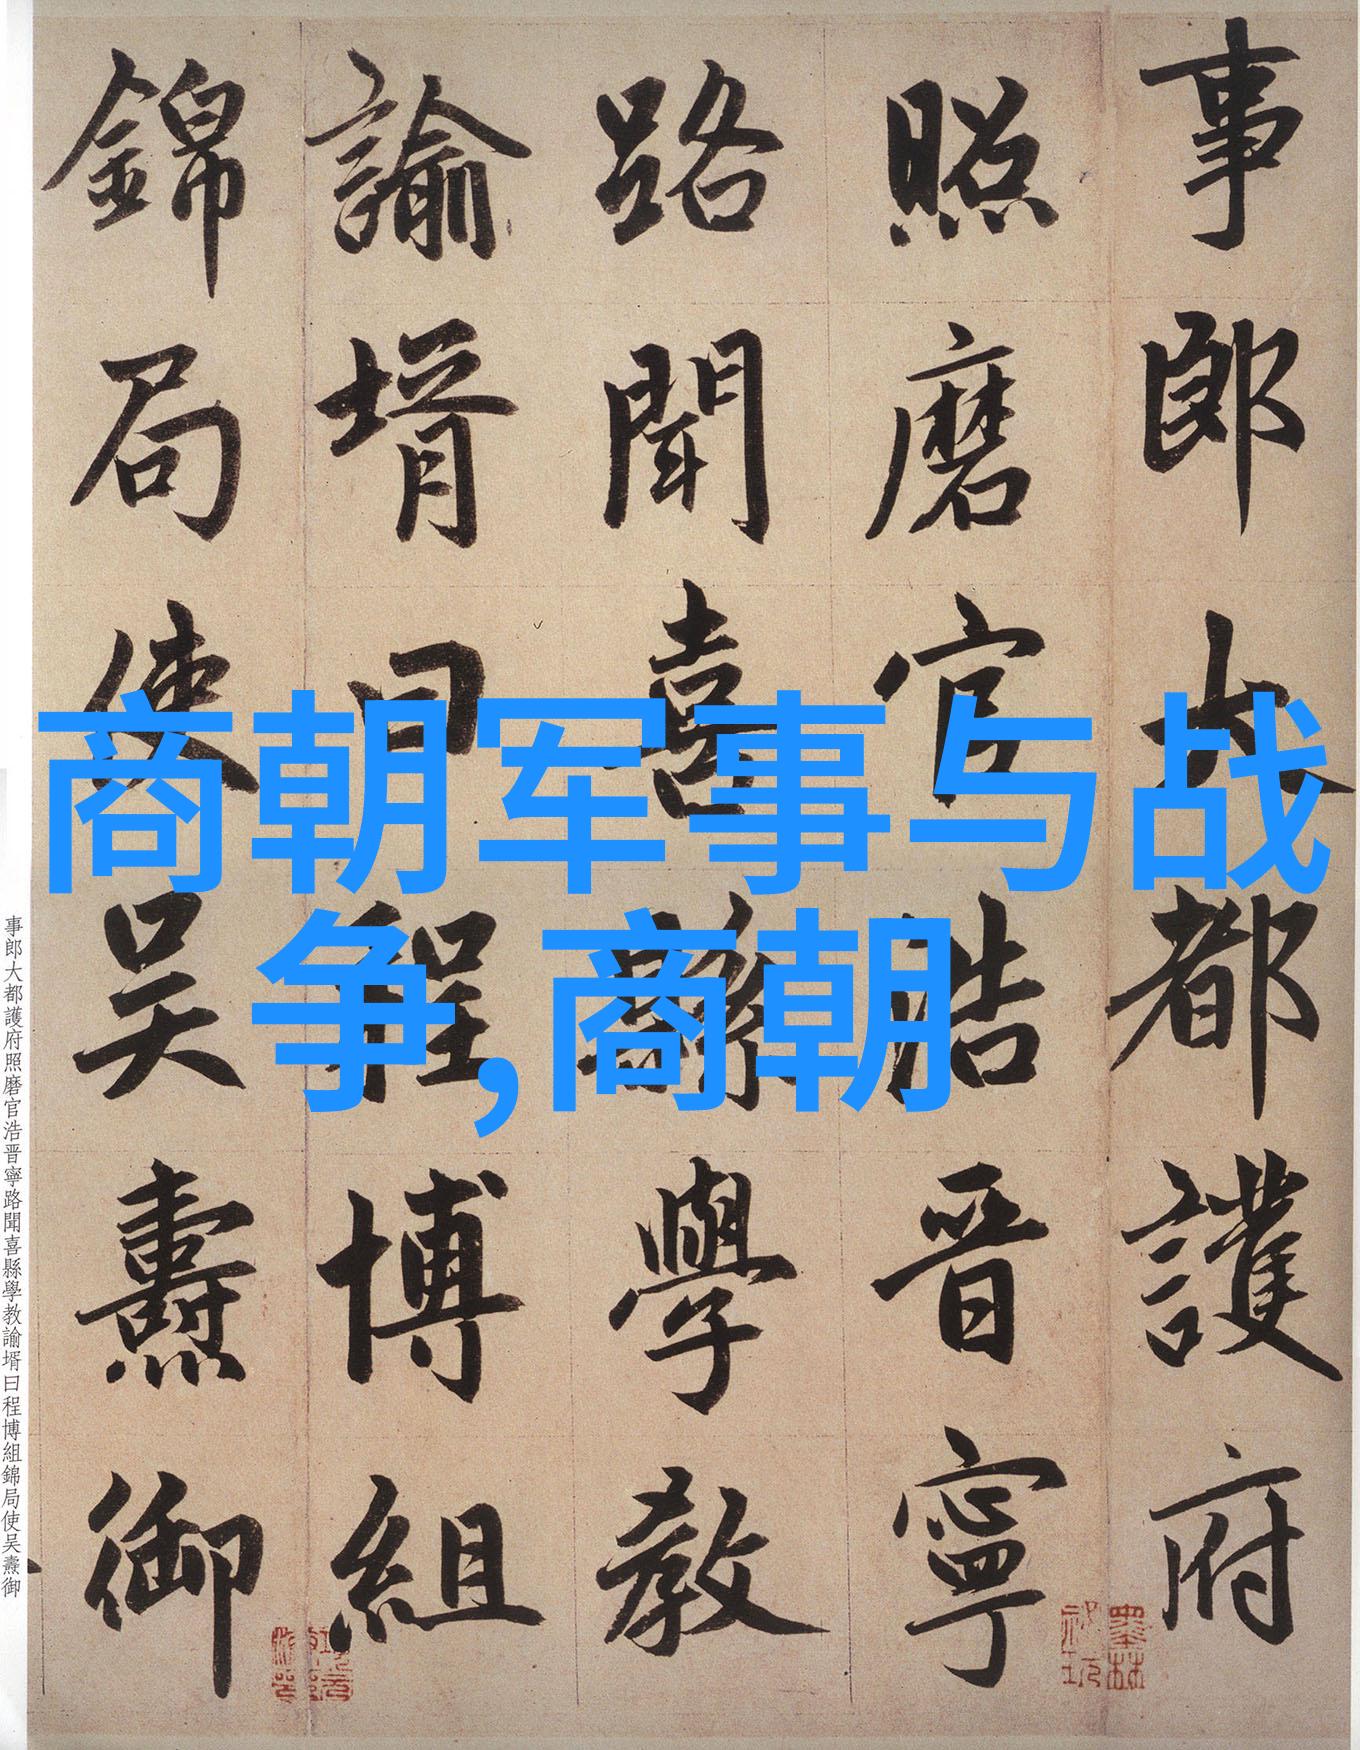 事郎大都護府
照磨官浩晋寧
路聞喜縣學教
諭壻曰程博組
錦局使吴燾御
商朝军事与战
争,商朝
事郎大都護府照磨官浩晋寧路聞喜縣學教諭壻曰程博組錦局使吴燾御